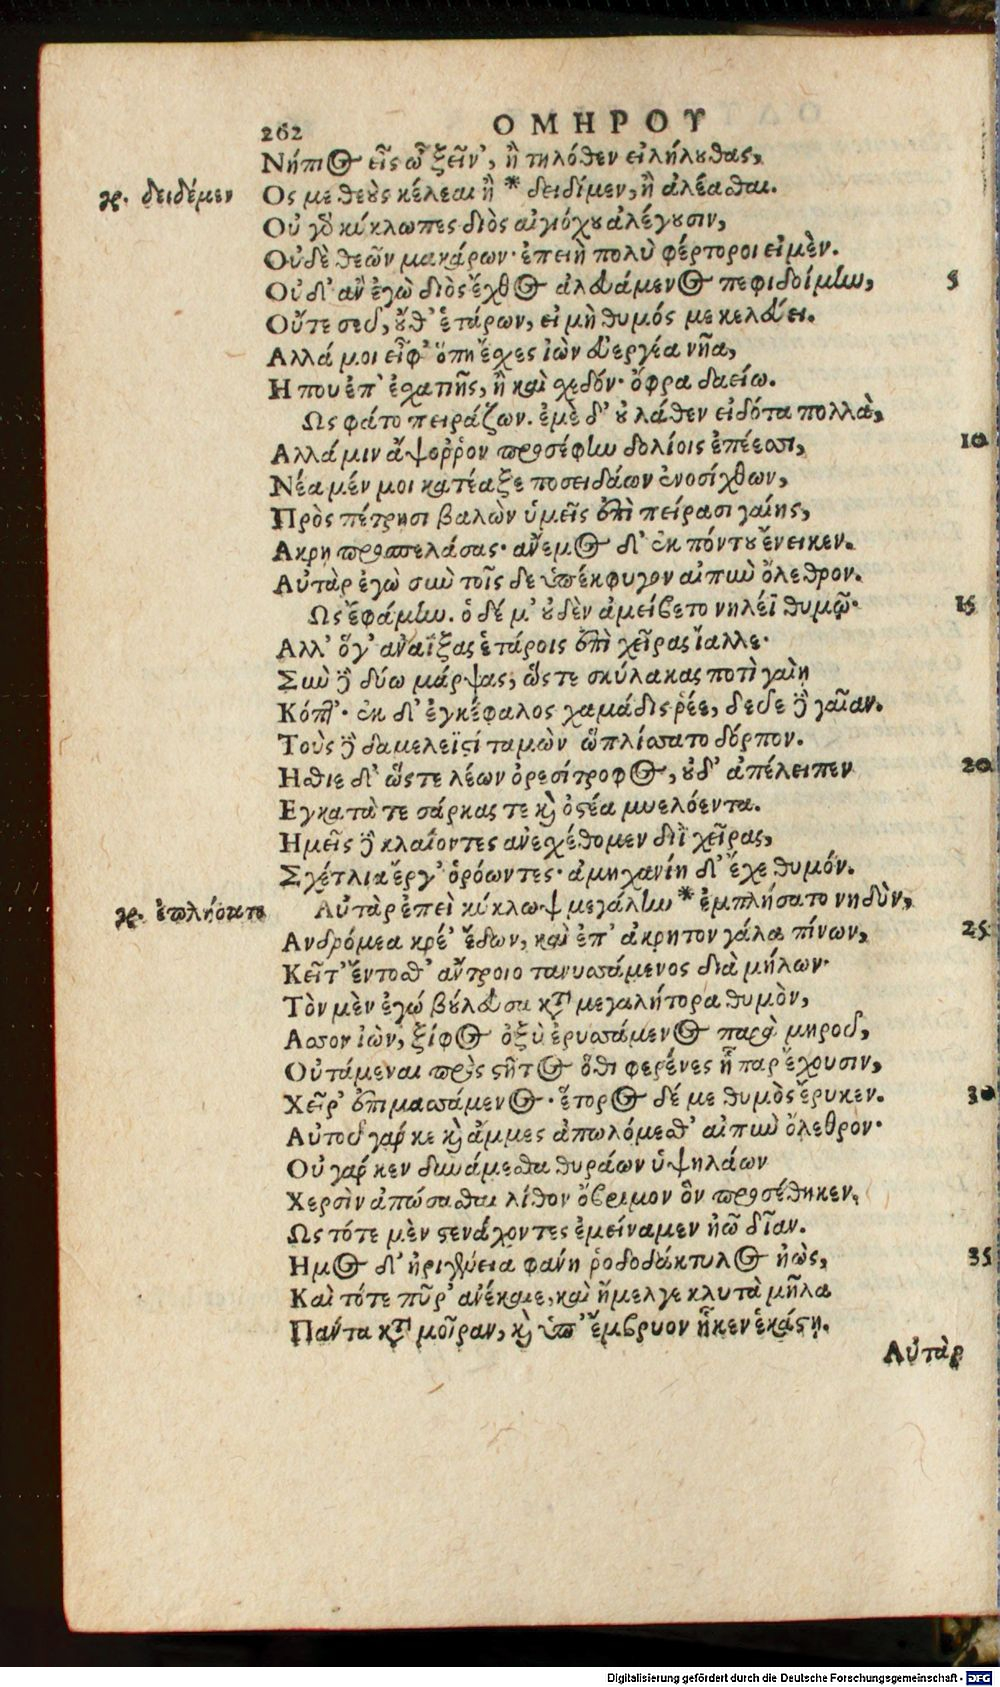 262 ΟΜΗΡΟΥ
Νήπιος εἶς ὦ ξεῖν', ἢ τηλόθεν εἰλήλουθας,
γρ. δειδέμεν Ος με θεοὺς κέλεαι ἢ * δειδίμεν, ἢ ἀλέασθαι.
Οὐ γὸ κύκλωπες διὸς αἰγιόχου ἀλέγουσιν,
Οὐδὲ θεῶν μακάρων· ἐπειὴ πολὺ φέρτεροι εἰμὲν.
Οὐδ' ἂν ἐγὼ διὸς ἔχθος ἀλευάμενος πεφιδοίμην, 5
Οὔτε σεῦ, οὔθ' ἑτάρων, εἰ μὴ θυμός με κελεύει.
Αλλά μοι εἶφ' ὅπη ἔχες ἰὼν εὐεργέα νῆα,
Η που ἐπ' ἐχατιῆς, ἢ καὶ χεδόν· ὄφρα δαείω.
Ως φάτο πειράζων. ἐμὲ δ' οὐ λάθεν εἰδότα πολλὰ,
Αλλά μιν ἄψοῤῥον προσέφην δολίοις ἐπέεσσι, 10
Νέα μέν μοι κατέαξε ποσειδάων ἐνοσίχθων,
Πρὸς πέτρησι βαλὼν ὑμεῖς ἐπὶ πείρασι γαίης,
Ακρη προσπελάσας· ἄνεμος δ' ἐκ πόντου ἔνεικεν.
Αὐτὰρ ἐγὼ σὺν τοῖς δε ὑπέκφυγον αἰπὺν ὄλεθρον.
Ως ἐφάμην. ὁ δέ μ' οὐδὲν ἀμείβετο νηλέϊ θυμῷ· 15
Αλλ' ὅγ' ἀναΐξας ἑτάροις ἐπὶ χεῖρας ἴαλλε·
Σὺν δὲ δύω μάρψας, ὥστε σκύλακας ποτὶ γαίῃ
Κόπτ'· ἐκ δ' ἐγκέφαλος χαμάδις ῥέε, δεῦε δὲ γαῖαν.
Τοὺς δὲ διαμελεϊστί ταμὼν ὡπλίσσατο δόρπον.
Ησθιε δ' ὥστε λέων ὀρεσίτροφος, οὐδ' ἀπέλειπεν 20
Εγκατὰ τε σάρκας τε καὶ ὀστέα μυελόεντα.
Ημεῖς δὲ κλαίοντες ἀνεχέθομεν διῒ χεῖρας,
Σχέτλια ἔργ' ὁρόωντες· ἀμηχανίη δ' ἔχε θυμόν.
γρ. ἐπλήσατο Αὐτὰρ ἐπεὶ κύκλωψ μεγάλην * ἐμπλήσατο νηδὺν,
Ανδρόμεα κρέ' ἔδων, καὶ ἐπ' ἄκρητον γάλα πίνων, 25
Κεῖτ' ἔντοσθ' ἄντροιο τανυσσάμενος διὰ μήλων·
Τὸν μὲν ἐγώ βούλευσα κατὰ μεγαλήτορα θυμὸν,
Ασσον ἰὼν, ξίφος ὀξὺ ἐρυσσάμενος παρὰ μηροῦ,
Οὐτάμεναι πρὸς στῆτος ὅθι φερένες ἧπαρ ἔχουσιν,
Χεῖρ' ἐπιμασσάμενος· ἕτορος δέ με θυμὸς ἔρυκεν. 30
Αὐτοῦ γάρ κε καὶ ἄμμες ἀπωλόμεσθ' αἰπὺν ὄλεθρον·
Οὐ γάρ κεν δυνάμεσθα θυράων ὑψηλάων
Χερσὶν ἀπώσασθαι λίθον ὄβριμον ὃν προσέθηκεν.
Ως τότε μὲν στενάχοντες ἐμείναμεν ἠῶ δῖαν.
Ημος δ' ἠριγένεια φάνη ῥοδοδάκτυλος ἠὼς, 35
Καὶ τότε πῦρ' ἀνέκαιε, καὶ ἤμελγε κλυτὰ μῆλα
Πάντα κατὰ μοῖραν, καὶ ὑπ' ἔμβρυον ἧκεν ἑκάστῃ.
Αὐτὰρ
Digitalisierung gefördert durch die Deutsche Forschungsgemeinschaft - DFG